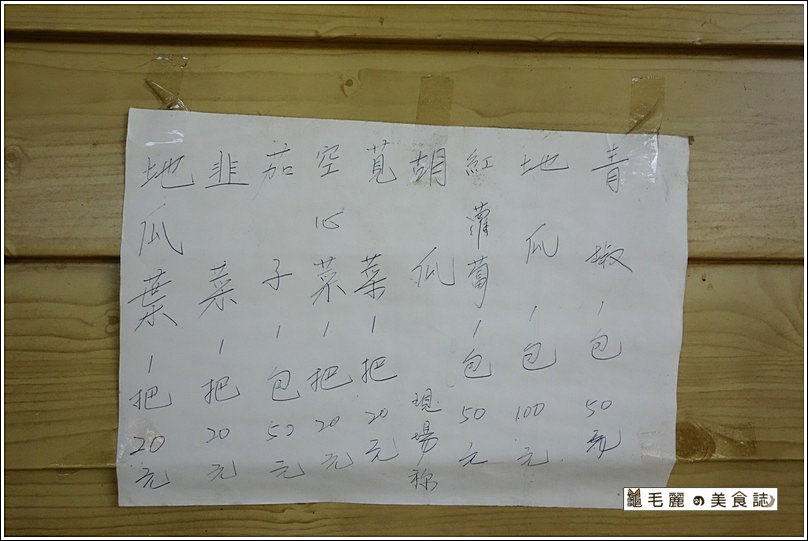 青椒1包50元
地瓜1包100元
紅蘿蔔1包50元
胡瓜現場秤
莧菜1把20元
空心菜1把20元
茄子1包50元
韭菜1把20元
地瓜葉1把20元
龜毛麗の美食誌